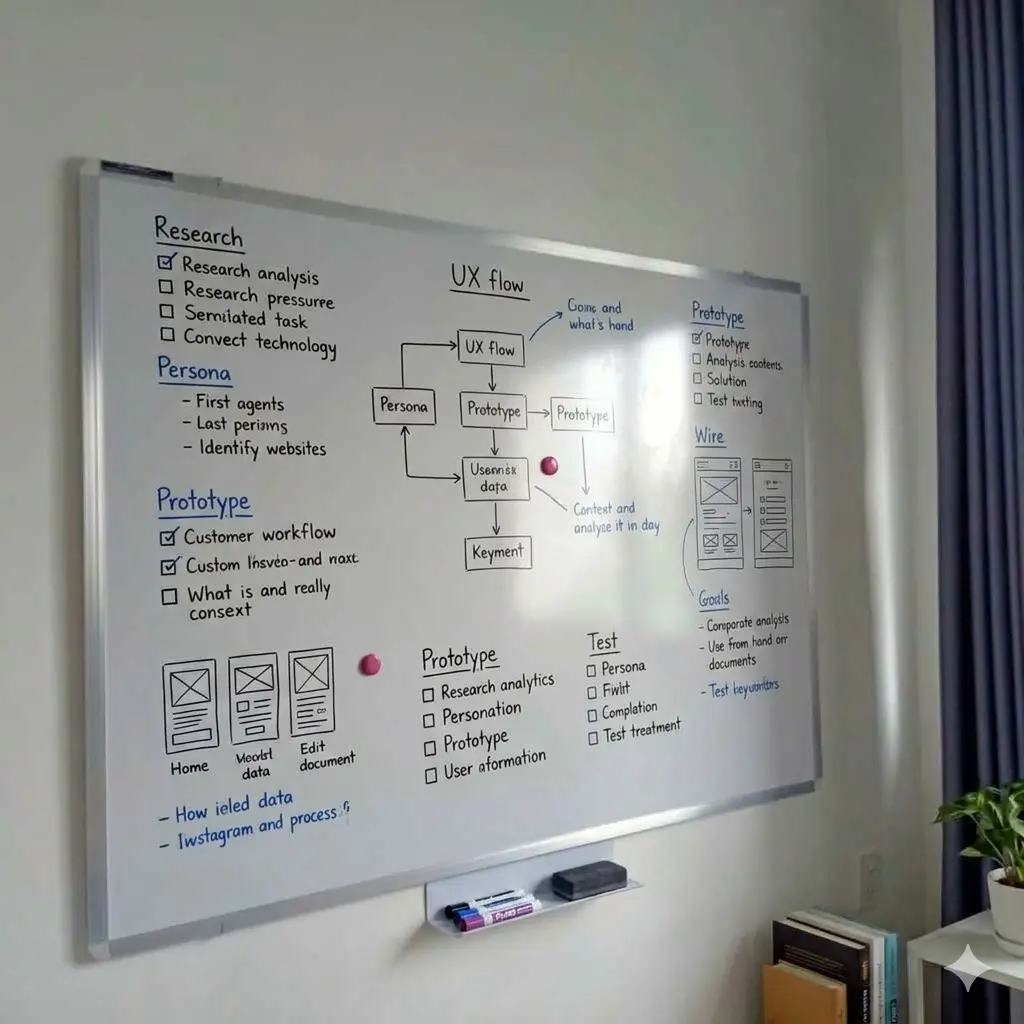 Research
Research analysis
Research pressuree
task
Convect technology
Persona
- First agents
- Last
- Identify websites
Prototype
Customer workflow
Custom and
What is and really
consext
Home
data
Edit
document
- How data
- and process
UX flow
UX flow
Persona
Prototype
Prototype
data
Keyment
and
what's hand
Context and
analyze it in day
Prototype
Research analytics
Personation
Prototype
User aformation
Test
Persona
Complation
Test treatment
Prototype
Prototype
Analysis
Solution
Test
Wire
Goals
- analysis
- Use from hand or
documents
- Test